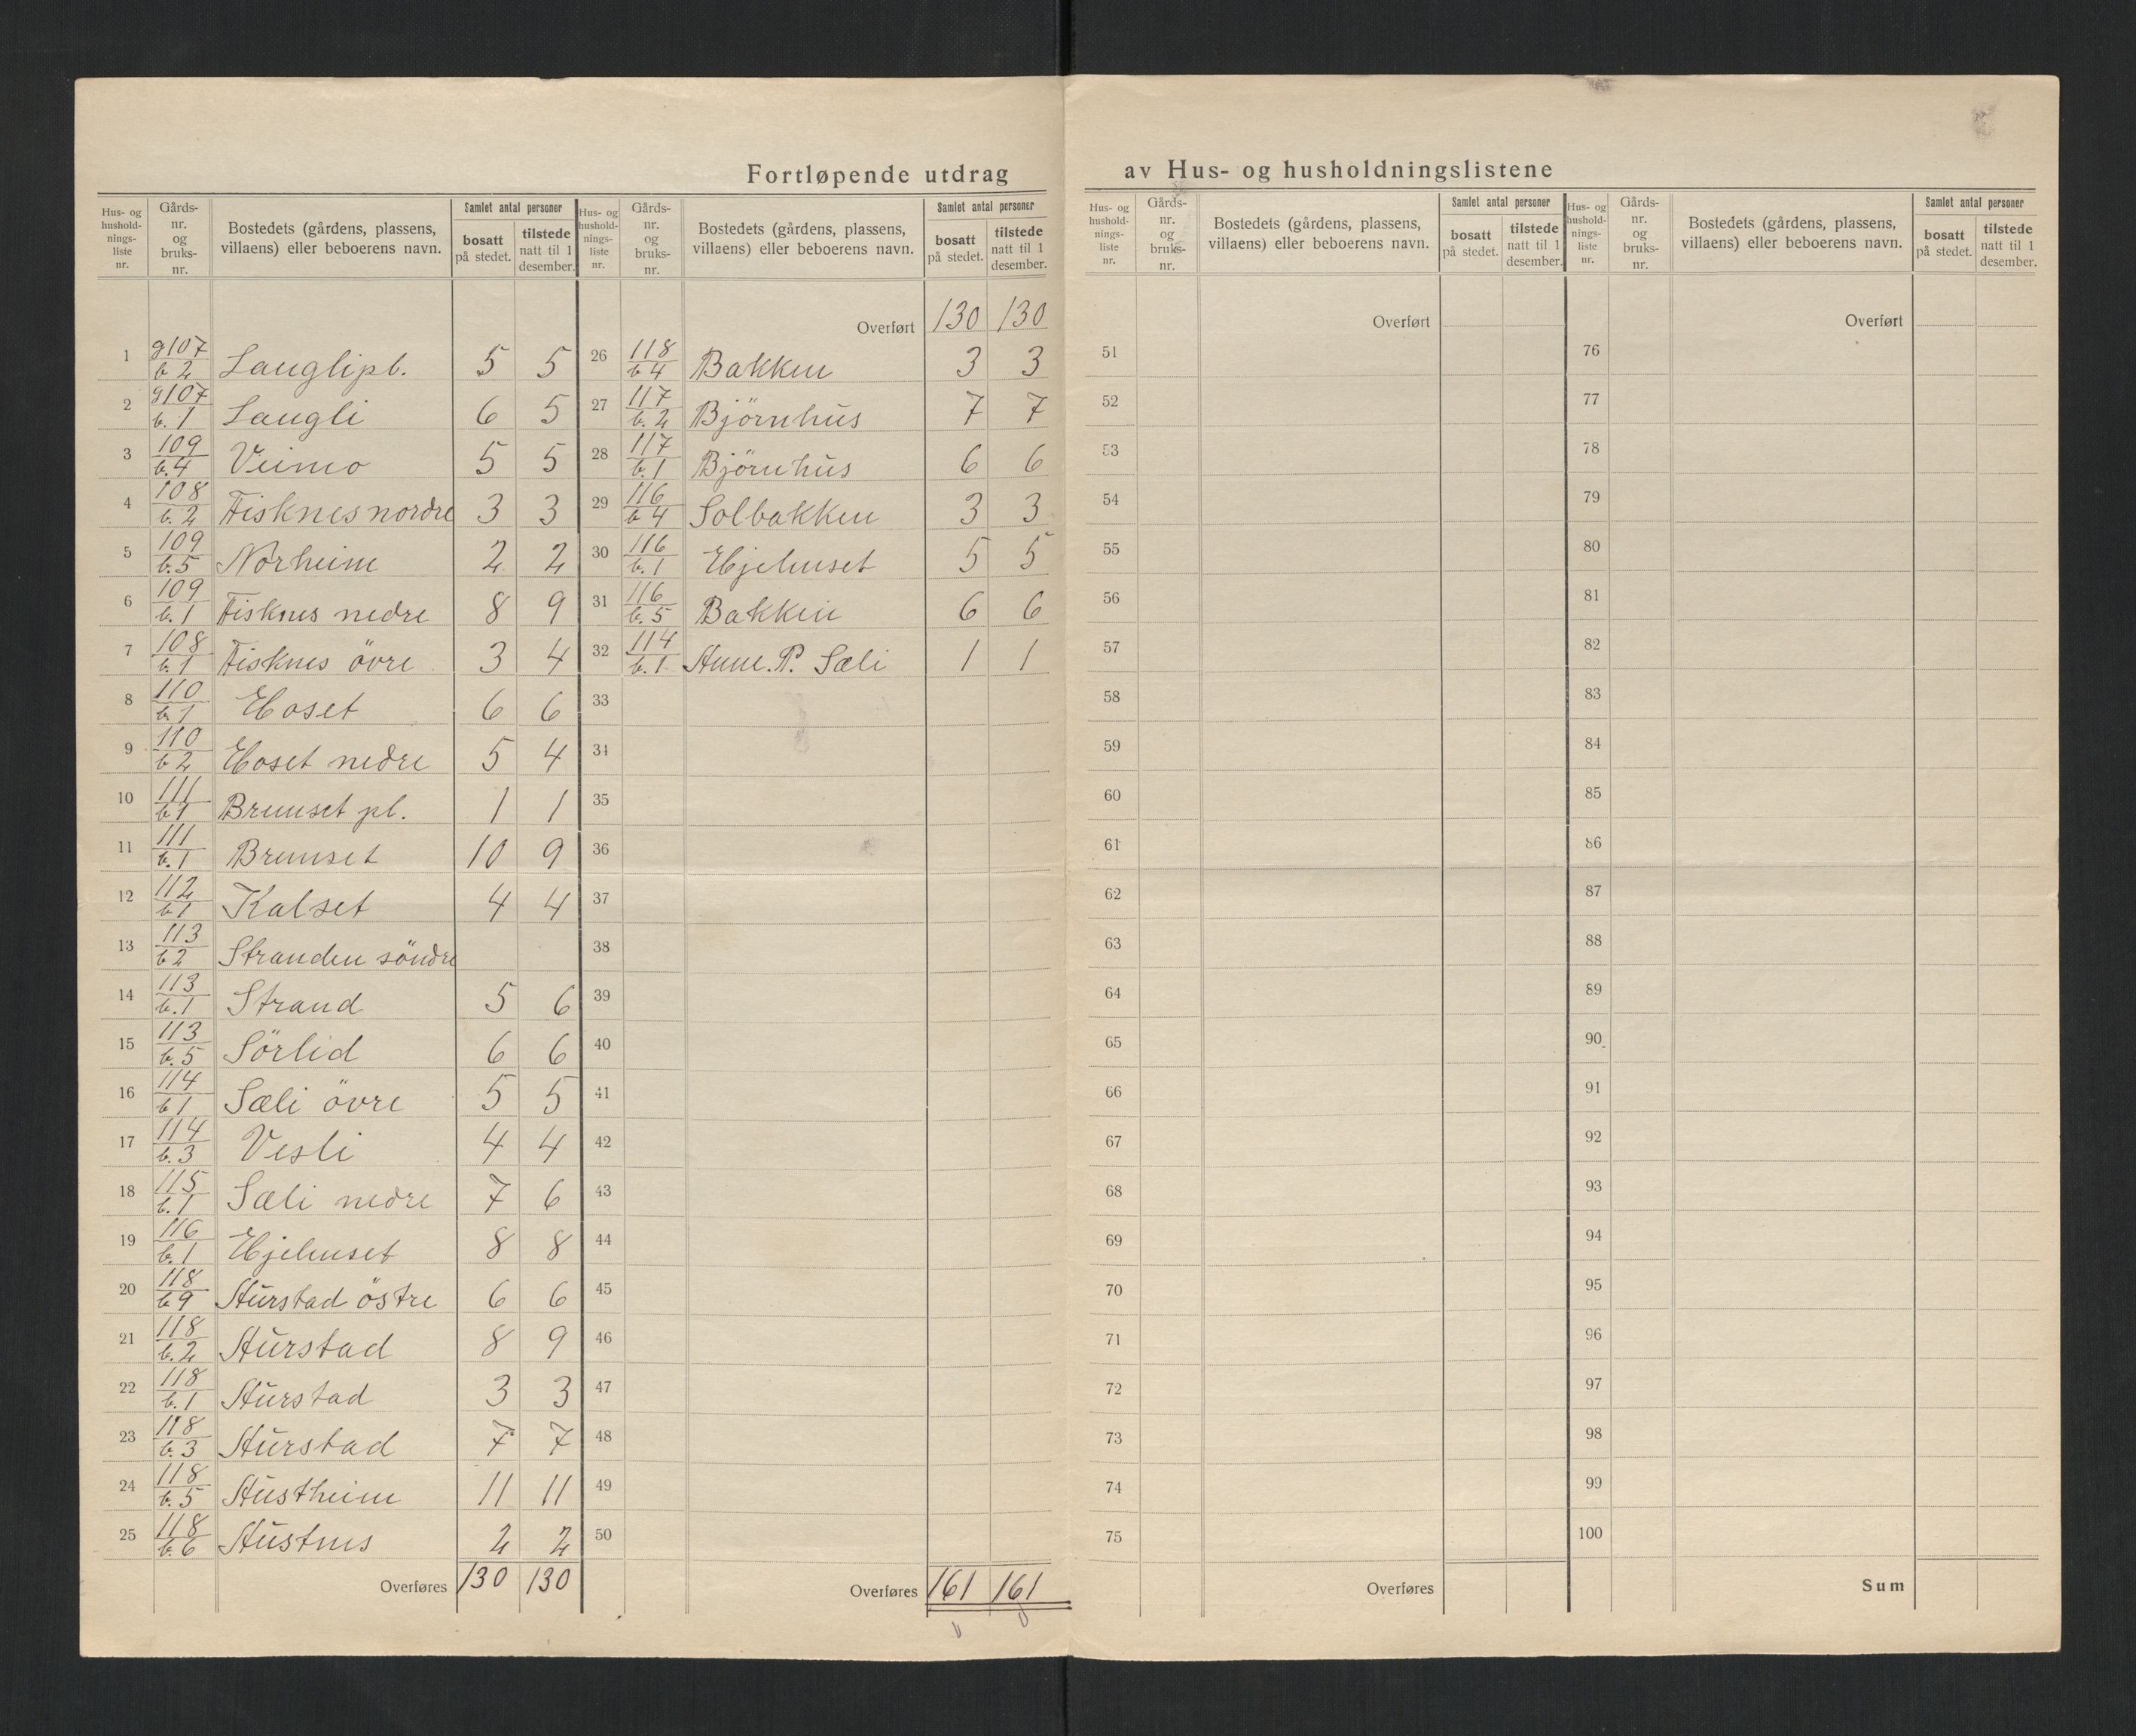 Fortløpende utdrag av Hus- og husholdningslistene
Hus- og hushold-nings-liste nr. Gårds-nr. og bruks-nr. Bostedets (gårdens, plassens, villaens) eller beboerens navn. Samlet antal personer bosatt på stedet. tilstede natt til 1 desember.
1 g107 b 2 Langlipl. 5 5
2 g107 b. 1 Langli 6 5
3 109 b. 4 Veimo 5 5
4 108 b. 2 Fisknes nordre 3 3
5 109 b. 5 Norheim 2 2
6 109 b. 1 Fisknes nedre 8 9
7 108 b. 1 Fisknes övre 3 4
8 110 b. 1 Hoset 6 6
9 110 b 2 Hoset nedre 5 4
10 111 b 1 Brunset pl. 1 1
11 111 b. 1 Brunset 10 9
12 112 b 1 Kalset 4 4
13 113 b 2 Stranden söndre
14 113 b. 1 Strand 5 6
15 113 b. 5 Sörlid 6 6
16 114 b 1 Sæli övre 5 5
17 114 b. 3 Vesli 4 4
18 115 b. 1 Sæli nedre 7 6
19 116 b. 1 Hjelmset 8 8
20 118 b 9 Hurstad östre 6 6
21 118 b. 2 Hurstad 8 9
22 118 b. 1 Hurstad 3 3
23 118 b. 3 Hurstad 7 7
24 118 b. 5 Hustheim 11 11
25 118 b. 6 Hustnes 2 2
Overføres 130 130
Hus- og hushold-nings-liste nr. Gårds-nr. og bruks-nr. Bostedets (gårdens, plassens, villaens) eller beboerens navn. Samlet antal personer bosatt på stedet. tilstede natt til 1 desember.
Overført 130 130
26 118 b 4 Bakken 3 3
27 117 b. 2 Björnhus 7 7
28 117 b. 1 Björnhus 6 6
29 116 b 4 Solbakken 3 3
30 116 b. 1 Hjelmset 5 5
31 116 b. 5 Bakken 6 6
32 114 b. 1 Anne. P. Sæli 1 1
33
34
35
36
37
38
39
40
41
42
43
44
45
46
47
48
49
50
Overføres 161 161
Hus- og hushold-nings-liste nr. Gårds-nr. og bruks-nr. Bostedets (gårdens, plassens, villaens) eller beboerens navn. Samlet antal personer bosatt på stedet. tilstede natt til 1 desember.
Overført
51
52
53
54
55
56
57
58
59
60
61
62
63
64
65
66
67
68
69
70
71
72
73
74
75
Overføres
Hus- og hushold-nings-liste nr. Gårds-nr. og bruks-nr. Bostedets (gårdens, plassens, villaens) eller beboerens navn. Samlet antal personer bosatt på stedet. tilstede natt til 1 desember.
Overført
76
77
78
79
80
81
82
83
84
85
86
87
88
89
90
91
92
93
94
95
96
97
98
99
100
Sum